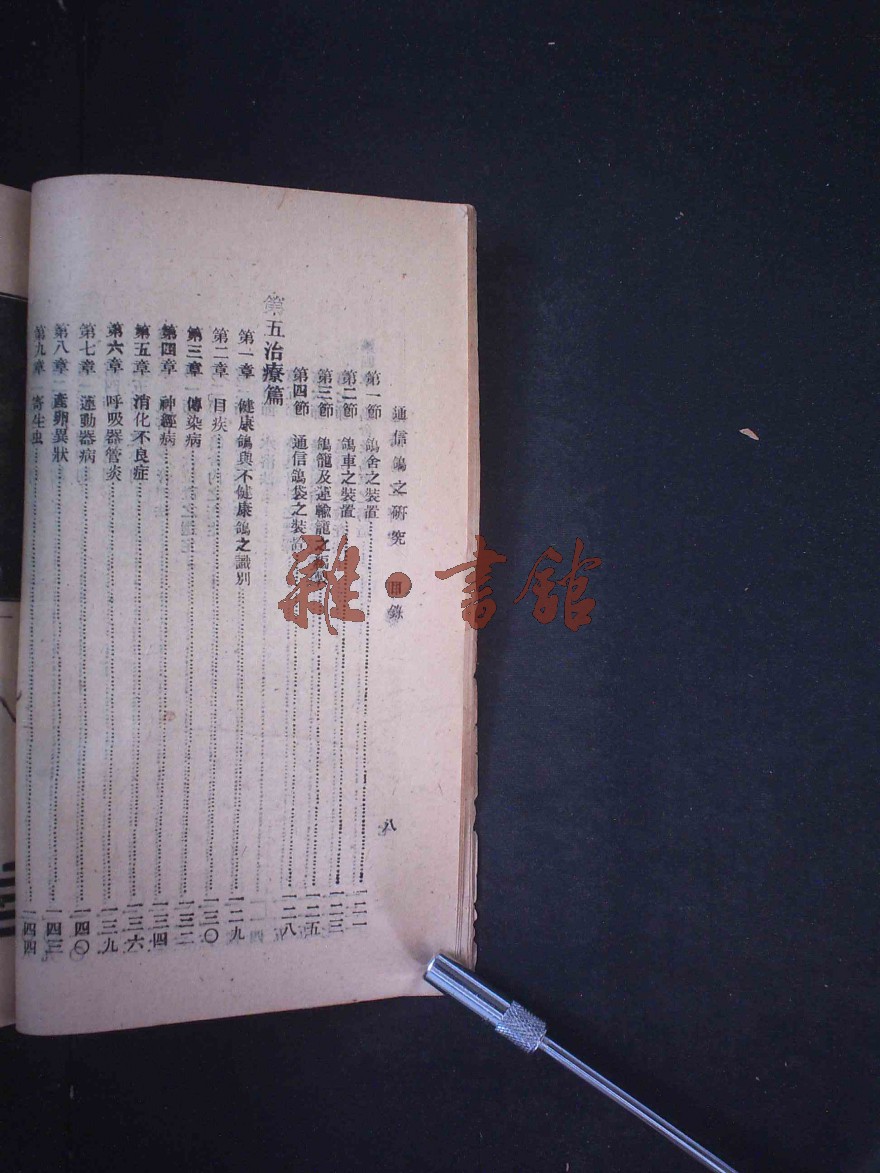 通信鴿之研究 目錄 八
第一節 鴿舍之裝置 一二一
第二節 鴿車之裝置 一二三
第三節 鴿籠及運輸籠之 一二五
第四節 通信鴿袋之裝 一二八
第五治療篇
第一章 健康鴿與不健康鴿之識別 一二九
第二章 目疾 一三〇
第三章 傳染病 一三二
第四章 神經病 一三四
第五章 消化不良症 一三六
第六章 呼吸器管炎 一三九
第七章 運動器病 一四〇
第八章 產卵異狀 一四三
第九章 寄生虫 一四四
雜·書館